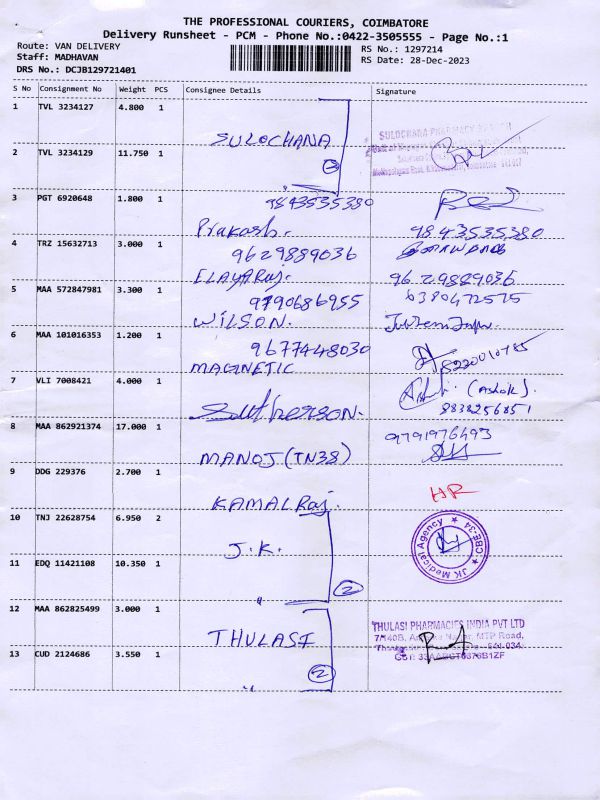 THE PROFESSIONAL COURIERS, COIMBATORE
Delivery Runsheet - PCM - Phone No.:0422-3505555 - Page No.:1
Route: VAN DELIVERY
RS No.: 1297214
Staff: MADHAVAN
RS Date: 28-Dec-2023
DRS No.: DCJB129721401
S No Consignment No Weight PCS Consignee Details Signature
1 TVL 3234127 4.800 1
SULOCHANA
SULOCHANA PHARMACY
2 TVL 3234129 11.750 1
3 PGT 6920648 1.800 1
9843535380
Prakash.
9843535380
4 TRZ 15632713 3.000 1
9629889036
ELAYARaj.
9629889036
5 MAA 572847981 3.300 1
9790686955
6380472575
WILSON.
6 MAA 101016353 1.200 1
9677448030
8220010785
MAGNETIC
7 VLI 7008421 4.000 1
(ASHOK).
9838256851
Sutherson.
8 MAA 862921374 17.000 1
9791976493
MANOJ (TN38)
9 DDG 229376 2.700 1
HR
KAMALRaj.
10 TNJ 22628754 6.950 2
J.K.
JK Medical Agency ★ CBE-34 ★
11 EDQ 11421108 10.350 1
2
12 MAA 862825499 3.000 1
THULASI
THULASI PHARMACIES INDIA PVT LTD
7/140B, Nagar, MTP Road,
13 CUD 2124686 3.550 1
2